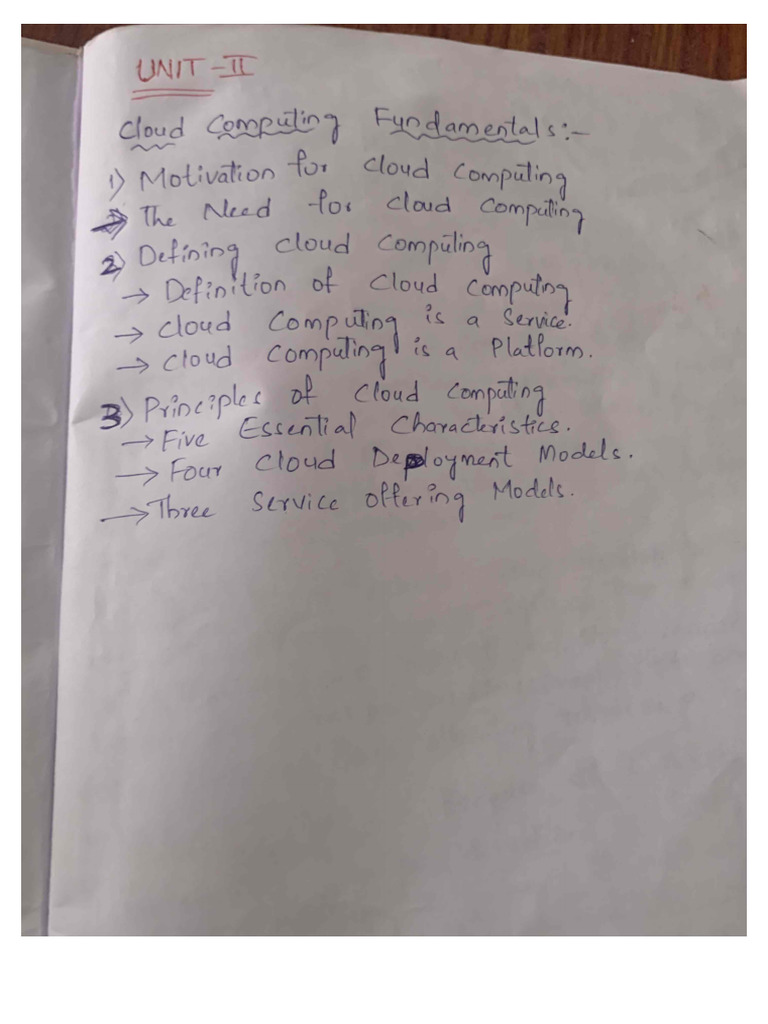 UNIT-II
Cloud Computing Fundamentals:-
1) Motivation for Cloud Computing
→ The Need for Cloud Computing
2) Defining Cloud Computing
→ Definition of Cloud Computing
→ Cloud Computing is a Service.
→ Cloud Computing is a Platform.
3) Principles of Cloud Computing
→ Five Essential Characteristics.
→ Four Cloud Deployment Models.
→ Three Service offering Models.